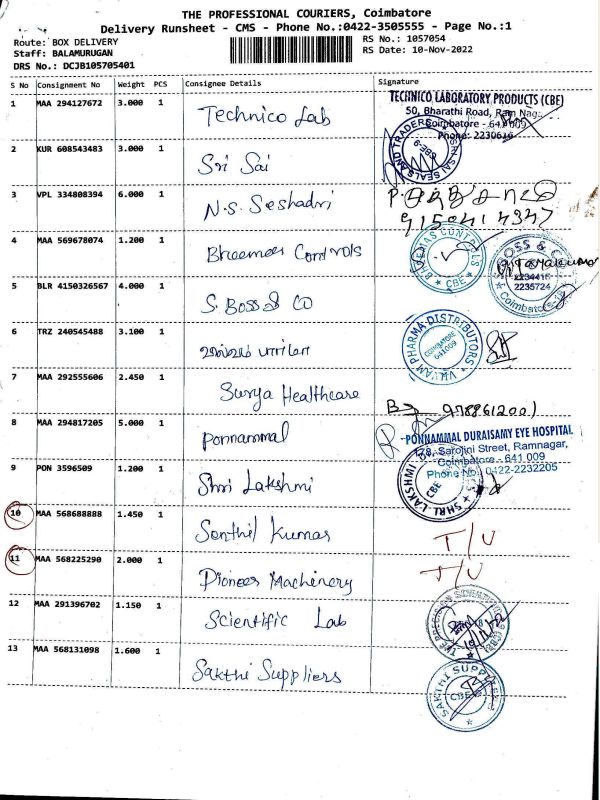 THE PROFESSIONAL COURIERS, Coimbatore
Delivery Runsheet - CMS - Phone No.:0422-3505555 - Page No.:1
Route: BOX DELIVERY
RS No.: 1057054
Staff: BALAMURUGAN
RS Date: 10-Nov-2022
DRS No.: DCJB105705401
S No Consignment No Weight PCS Consignee Details Signature
1 MAA 294127672 3.000 1 Technico Lab
TECHNICO LABORATORY PRODUCTS (CBE)
50, Bharathi Road, Ram Nagar,
Coimbatore - 641 009
Phone: 2230616
2 KUR 608543483 3.000 1 Sri Sai
SRI SAI SEALS AND TRADERS
3 VPL 334808394 6.000 1 N.S. Seshadri
4 MAA 569678074 1.200 1 Bheemas Controls
BHEEMAS CONTROLS
CBE
5 BLR 4150326567 4.000 1 S. Boss & Co
BOSS & CO
2234416
2235724
Coimbatore
6 TRZ 240545488 3.100 1
PHARMA DISTRIBUTORS
COIMBATORE
641009
7 MAA 292555606 2.450 1 Surya Healthcare
8 MAA 294817205 5.000 1 Ponnammal
PONNAMMAL DURAISAMY EYE HOSPITAL
178, Sarojini Street, Ramnagar,
Coimbatore - 641 009
Phone No: 0422-2232205
9 PON 3596509 1.200 1 Shri Lakshmi
SHRI LAKSHMI
CBE
10 MAA 568688888 1.450 1 Senthil Kumar T/U
11 MAA 568225290 2.000 1 Pioneer Machinery T/U
12 MAA 291396702 1.150 1 Scientific Lab
13 MAA 568131098 1.600 1 Sakthi Suppliers
SAKTHI SUPPLIERS
CBE